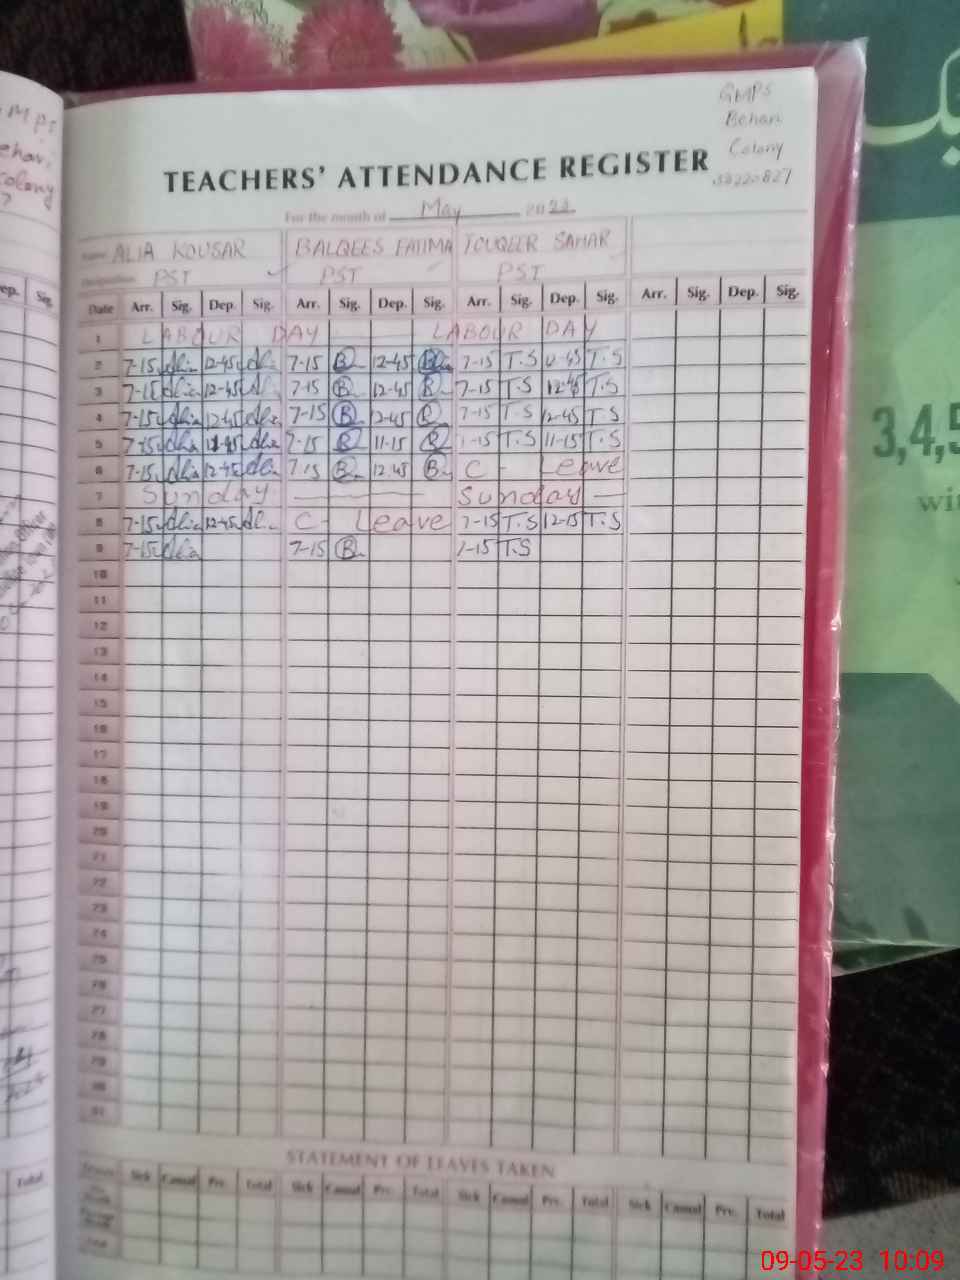 GMPS
Behari
Colony
TEACHERS' ATTENDANCE REGISTER
For the month of May 20
Name ALIA KOUSAR BALQEES FATIMA TOUQEER SAHAR
Designation PST PST PST
Date Arr. Sig. Dep. Sig. Arr. Sig. Dep. Sig. Arr. Sig. Dep. Sig. Arr. Sig. Dep. Sig.
1 LABOUR DAY LABOUR DAY
2 7-15 Alia 12-45 Alia 7-15 B 12-45 B 7-15 T.S 12-45 T.S
3 7-15 Alia 12-45 7-15 B 12-45 B 7-15 T.S 12-45 T.S
4 7-15 Alia 12-45 Alia 7-15 B 12-45 B 7-15 T.S 12-45 T.S
5 Alia Alia 7-15 B 11-15 B 7-15 T.S 11-15 T.S
6 7-15 Alia 12-45 Alia 7-15 B 12-45 B C - Leave
7 Sunday Sunday
8 7-15 Alia 12-45 C - Leave 7-15 T.S 12-15 T.S
9 7-15 Alia 7-15 B 7-15 T.S
10
11
12
13
14
15
16
17
18
19
20
21
22
23
24
25
26
27
28
29
30
31
STATEMENT OF LEAVES TAKEN
Leaves Sick Casual Prv. Total Sick Casual Prv. Total Sick Casual Prv. Total Sick Casual Prv. Total
Total
3,4,5
09-05-23 10:09